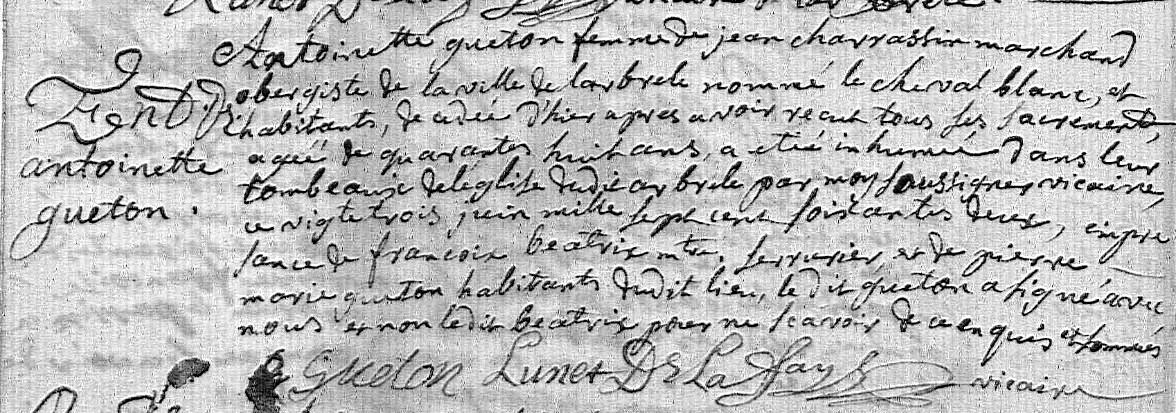 Antoinette gueton femme de jean charrassin marchand
Ent. D
obergiste de la ville de larbrele nommé le cheval blanc, et
habitants, decedée d'hier apres avoir recut tous ses sacrements,
antoinette
ageé de quarantes huit ans, a etté inhumée dans leur
tombeaux de leglise dudit arbrele par moy soussigner vicaire,
gueton.
ce vigt trois juin mille sept cent soixantes deux, en pre
sance de francois beatrix mtre. serrurier, et de pierre
marie gueton habitants dudit lieu, le dit gueton a signé avec
nous et non ledit beatrix pour ne scavoir de ce enquis et sommés
Gueton Lunet De La Fays vicaire